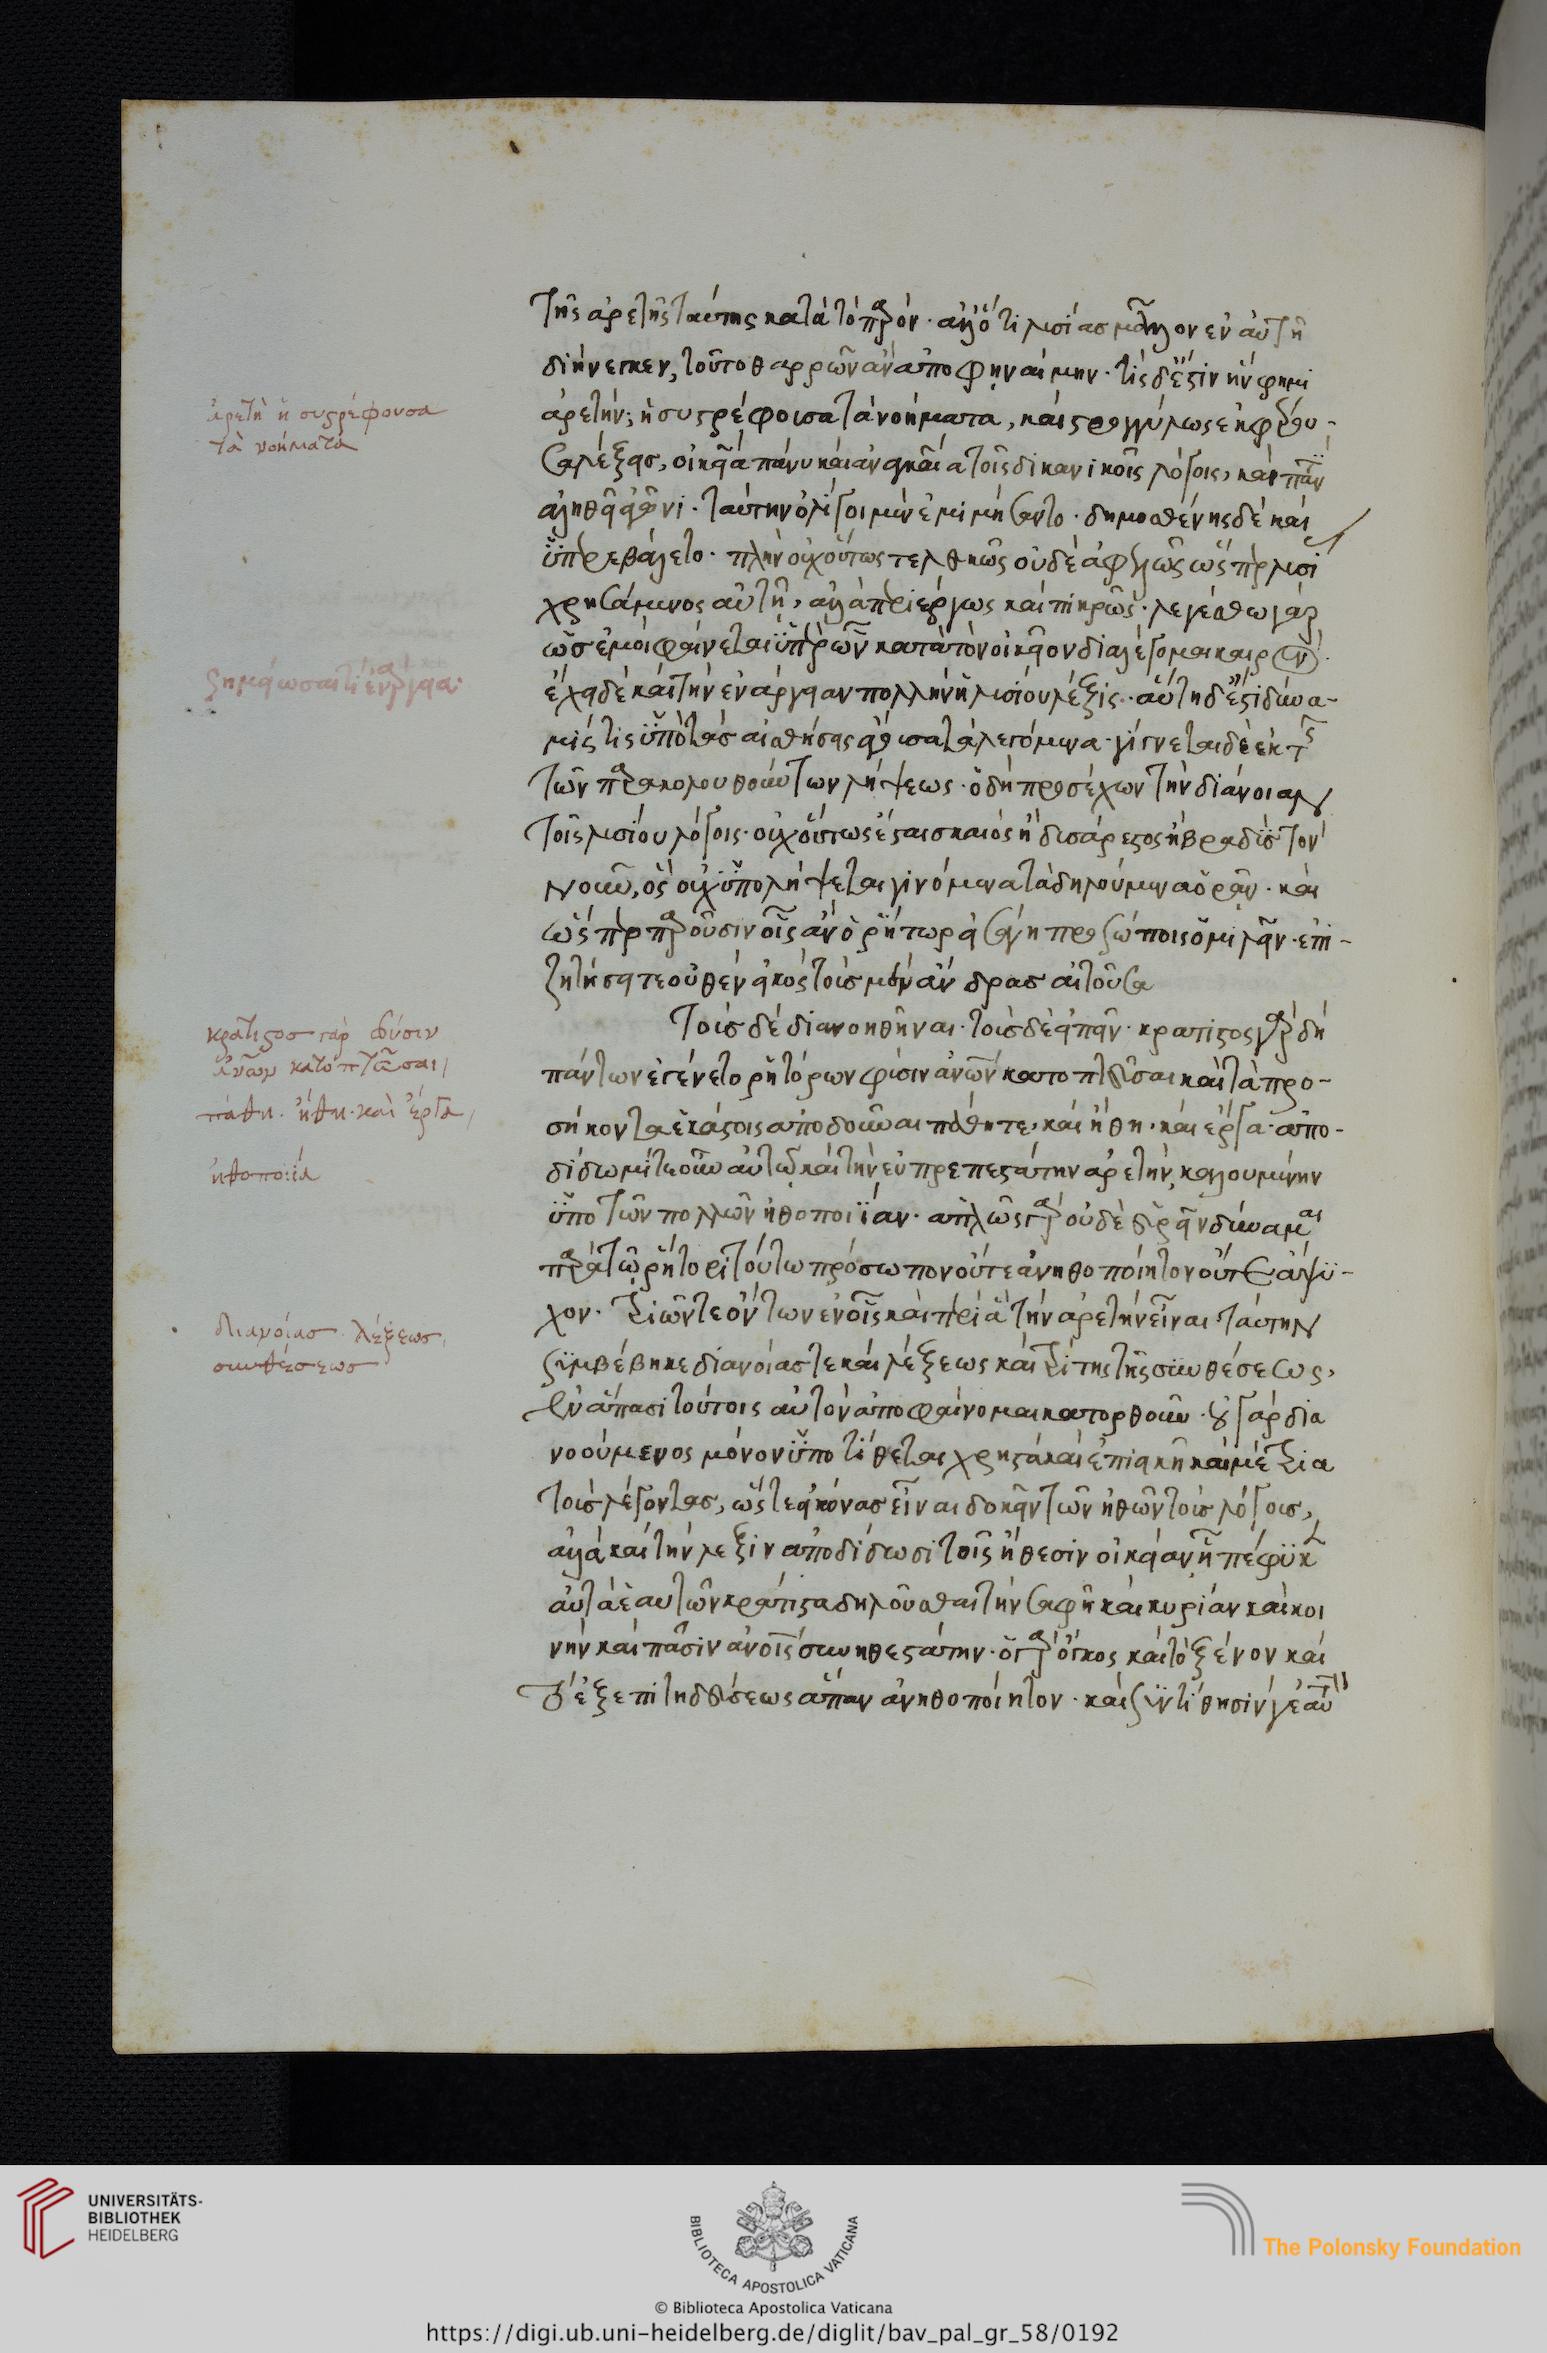 τῆς ἀρετῆς ταύτης κατὰ τὸ παρόν· ἀλλ' ὅτι λυσίας μᾶλλον ἐν αὐτῆ
διήνεγκεν, τοῦτο θαρρῶν ἂν ἀποφηναίμην· τίς δ' ἔστιν ἥν φημι
ἀρετήν; ἡ συστρέφουσα τὰ νοήματα, καὶ στρογγύλως ἐκφέρου-
σα λέξεις, οἰκεία πάνυ καὶ ἀναγκαία τοῖς δικανικοῖς λόγοις, καὶ παντὶ
ἀληθεῖ ἀγῶνι· ταύτην ὀλίγοι μὲν ἐμιμήσαντο· δημοσθένης δὲ καὶ
ὑπερεβάλετο· πλὴν οὐχ οὕτως γε λευκῶς οὐδὲ ἀφελῶς ὥσπερ λυσί
χρησάμενος αὐτῆ, ἀλλὰ περιέργως καὶ πικρῶς· λεγέσθω γὰρ
ὡς ἐμοὶ φαίνεται ὑπὲρ ὧν κατὰ τὸν οἰκεῖον διαλέξομαι καιρόν·
ἔχει δὲ καὶ τὴν ἐνάργειαν πολλὴν ἡ λυσίου λέξις· αὕτη δ' ἐστὶ δύνα-
μίς τις ὑπὸ τὰς αἰσθήσεις ἄγουσα τὰ λεγόμενα· γίγνεται δὲ ἐκ τῆς
τῶν παρακολουθούντων λήψεως· ὁ δὴ προσέχων τὴν διάνοιαν
τοῖς λυσίου λόγοις· οὐχ οὕτως ἔσται σκαιὸς ἢ δυσάρεστος ἢ βραδὺς τὸν
νοῦν, ὃς οὐχ ὑπολήψεται γινόμενα τὰ δηλούμενα ὁρᾶν· καὶ
ὥσπερ παροῦσιν οἷς ἂν ὁ ῥήτωρ εἰσάγη προσώποις ὁμιλεῖν· ἐπι-
ζητήσει τε οὐθὲν εἰκὸς τοὺς μὲν ἂν δρᾶσαι τοῦσα
τοὺς δὲ διανοηθῆναι· τοὺς δὲ εἰπεῖν· κράτιστος γὰρ δὴ
πάντων ἐγένετο ῥητόρων φύσιν ἀνων κατοπτεῦσαι καὶ τὰ προ-
σήκοντα ἑκάστοις ἀποδοῦναι πάθη τε, καὶ ἤθη, καὶ ἔργα· ἀπο-
δίδωμί τε οὖν αὐτῷ καὶ τὴν εὐπρεπεστάτην ἀρετὴν, καλουμένην
ὑπὸ τῶν πολλῶν ἠθοποιΐαν· ἁπλῶς γὰρ οὐδὲ εὑρεῖν δύναμαι
παρὰ τῷ ῥήτορι τούτω πρόσωπον οὔτε ἀνηθοποίητον οὔτε ἄψυ-
χον· τριῶν τε ὄντων ἐν οἷς καὶ περὶ ἃ τὴν ἀρετὴν εἶναι ταύτην
συμβέβηκε διανοίας τε καὶ λέξεως καὶ τρίτης τῆς συνθέσεως,
ἐν ἅπασι τούτοις αὐτὸν ἀποφαίνομαι κατορθοῦν· οὐ γὰρ δια
νοούμενος μόνον ὑποτίθεται χρηστὰ καὶ ἐπιεικῆ καὶ μέτρια
τοὺς λέγοντας, ὥστε εἰκόνας εἶναι δοκεῖν τῶν ἠθῶν τοὺς λόγους,
ἀλλὰ καὶ τὴν λέξιν ἀποδίδωσι τοῖς ἤθεσιν οἰκείαν ἧ πέφυκε
αὐτὰ ἑαυτῶν κράτιστα δηλοῦσθαι τὴν σαφῆ καὶ κυρίαν καὶ κοι
νὴν καὶ πᾶσιν ἀνοις συνηθεστάτην· ὁ γὰρ ὄγκος, καὶ τὸ ξένον καὶ
τὸ ἐξ ἐπιτηδεύσεως ἅπαν ἀνηθοποίητον· καὶ συντίθησίν γε αὐτὴν
ἀρετὴ ἡ συστρέφουσα
τὰ νοήματα
σημείωσαι τί ἐνάργεια·
κράτιστος γὰρ φύσιν
ἀνων κατοπτεῦσαι,
πάθη· ἤθη· καὶ ἔργα,
ἠθοποιΐα
διανοίας· λέξεως,
συνθέσεως
UNIVERSITÄTS-
BIBLIOTHEK
HEIDELBERG
BIBLIOTECA APOSTOLICA VATICANA
The Polonsky Foundation
© Biblioteca Apostolica Vaticana
https://digi.ub.uni-heidelberg.de/diglit/bav_pal_gr_58/0192